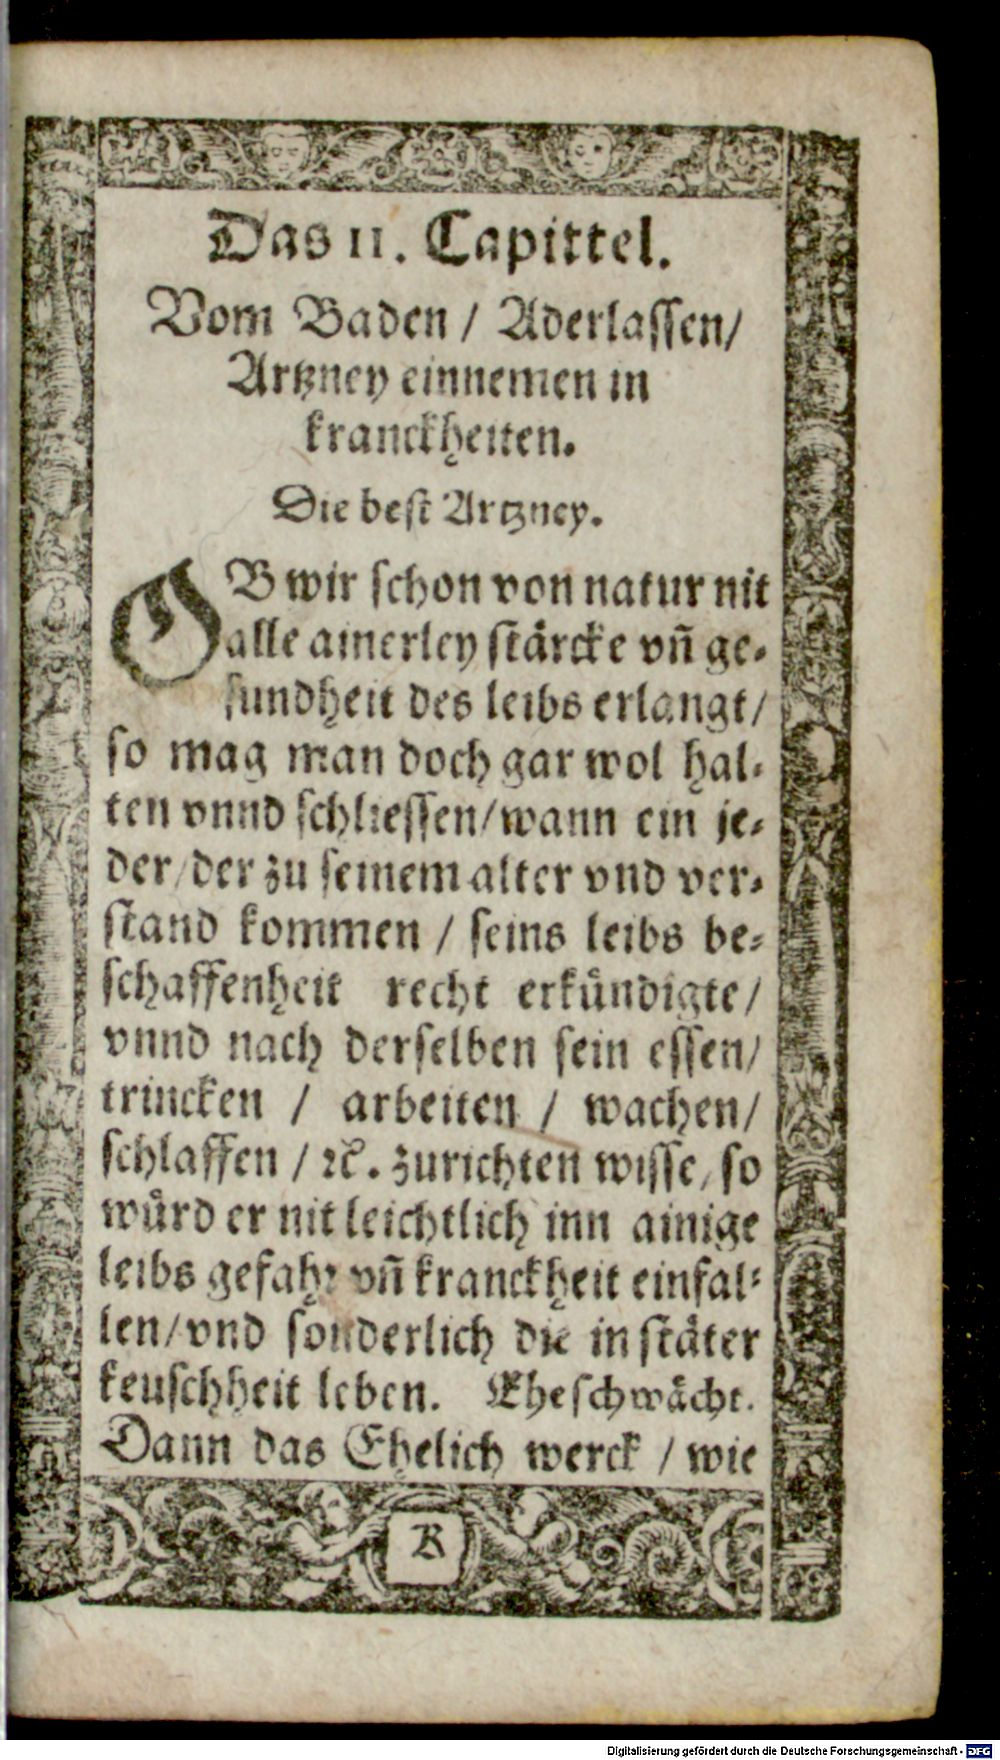 Das 11. Capittel.
Vom Baden / Aderlassen/
Artzney einnemen in
kranckheiten.
Die best Artzney.
OB wir schon von natur nit
alle ainerley stärcke vñ ge-
sundheit des leibs erlangt/
so mag man doch gar wol hal-
ten vnnd schliessen/wann ein je-
der/der zu seinem alter vnd ver-
stand kommen / seins leibs be-
schaffenheit recht erkündigte/
vnnd nach derselben sein essen/
trincken / arbeiten / wachen/
schlaffen / ꝛc. zurichten wisse/so
würd er nit leichtlich inn ainige
leibs gefahr vñ kranckheit einfal-
len/vnd sonderlich die in stäter
keuschheit leben. Eheschwächt.
Dann das Ehelich werck / wie
K
Digitalisierung gefördert durch die Deutsche Forschungsgemeinschaft - DFG